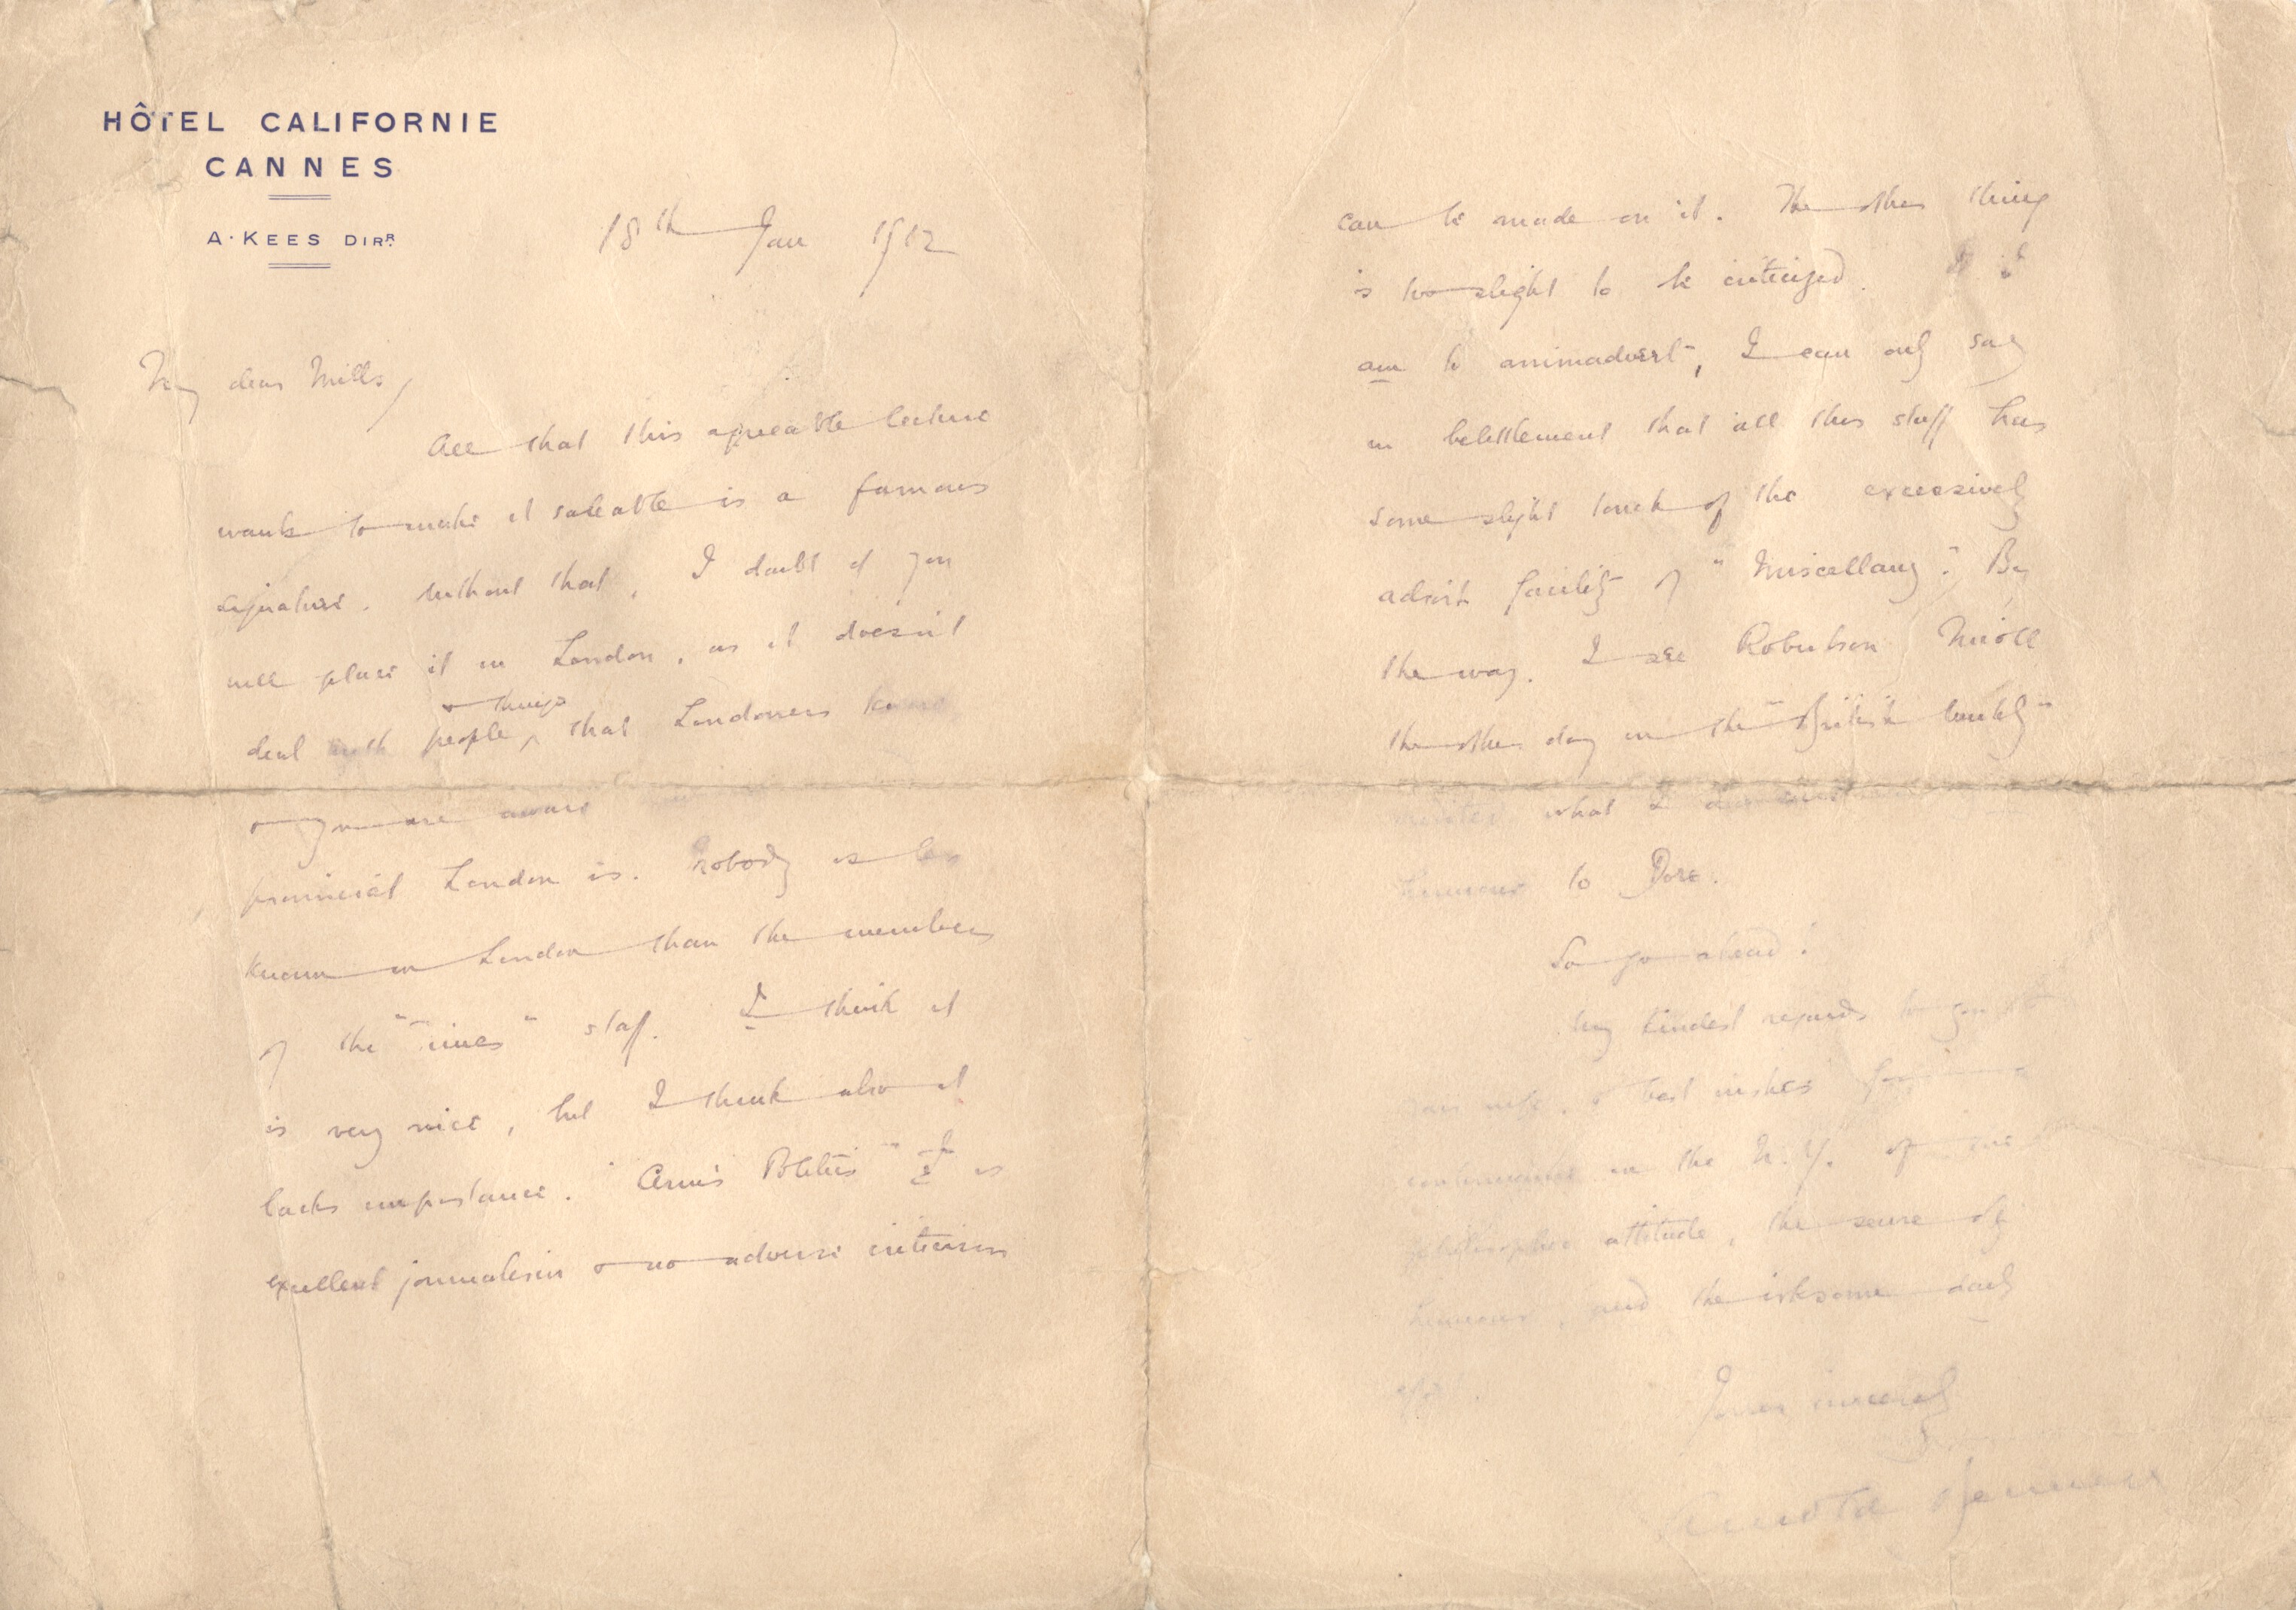 HÔTEL CALIFORNIE
CANNES
A. KEES DIRR.
18th Jan 1912
My dear Mills,
All that this agreeable lecture
wants to make it saleable is a famous
signature. Without that, I doubt if you
will place it in London, as it doesn't
deal with people & things, that Londoners know
& you are aware
provincial London is. Nobody is less
known in London than the members
of the "Times" staff. I think it
is very nice, but I think also it
lacks importance. "Politics" & is
excellent journalism & no adverse criticism
can be made on it. The other thing
is too slight to be criticized. If I
am to animadvert, I can only say
in belittlement that all this stuff has
some slight touch of the excessively
adroit facility of "Miscellany". By
the way, I see Robertson Nicoll
the other day in the "British Weekly"
what I
humour to Dore.
So go ahead!
My kindest regards to you &
your wife, & best wishes for
continuance in the N.Y. of the
philosophic attitude, the sense of
humour, and the irksome daily
Yours sincerely
Arnold Bennett